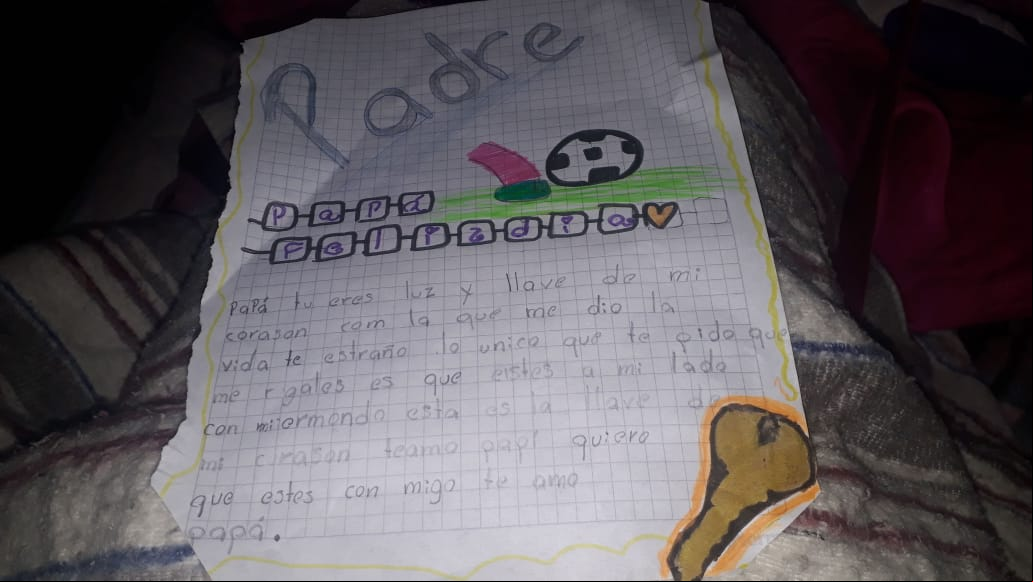 Padre
Papá
Felizdia
Papá tu eres luz y llave de mi
corason com la que me dio la
vida te estraño lo unico que te pido que
me rgales es que estes a mi lado
con miermondo esta es la llave de
mi corason teamo papi quiero
que estes con migo te amo
papá.